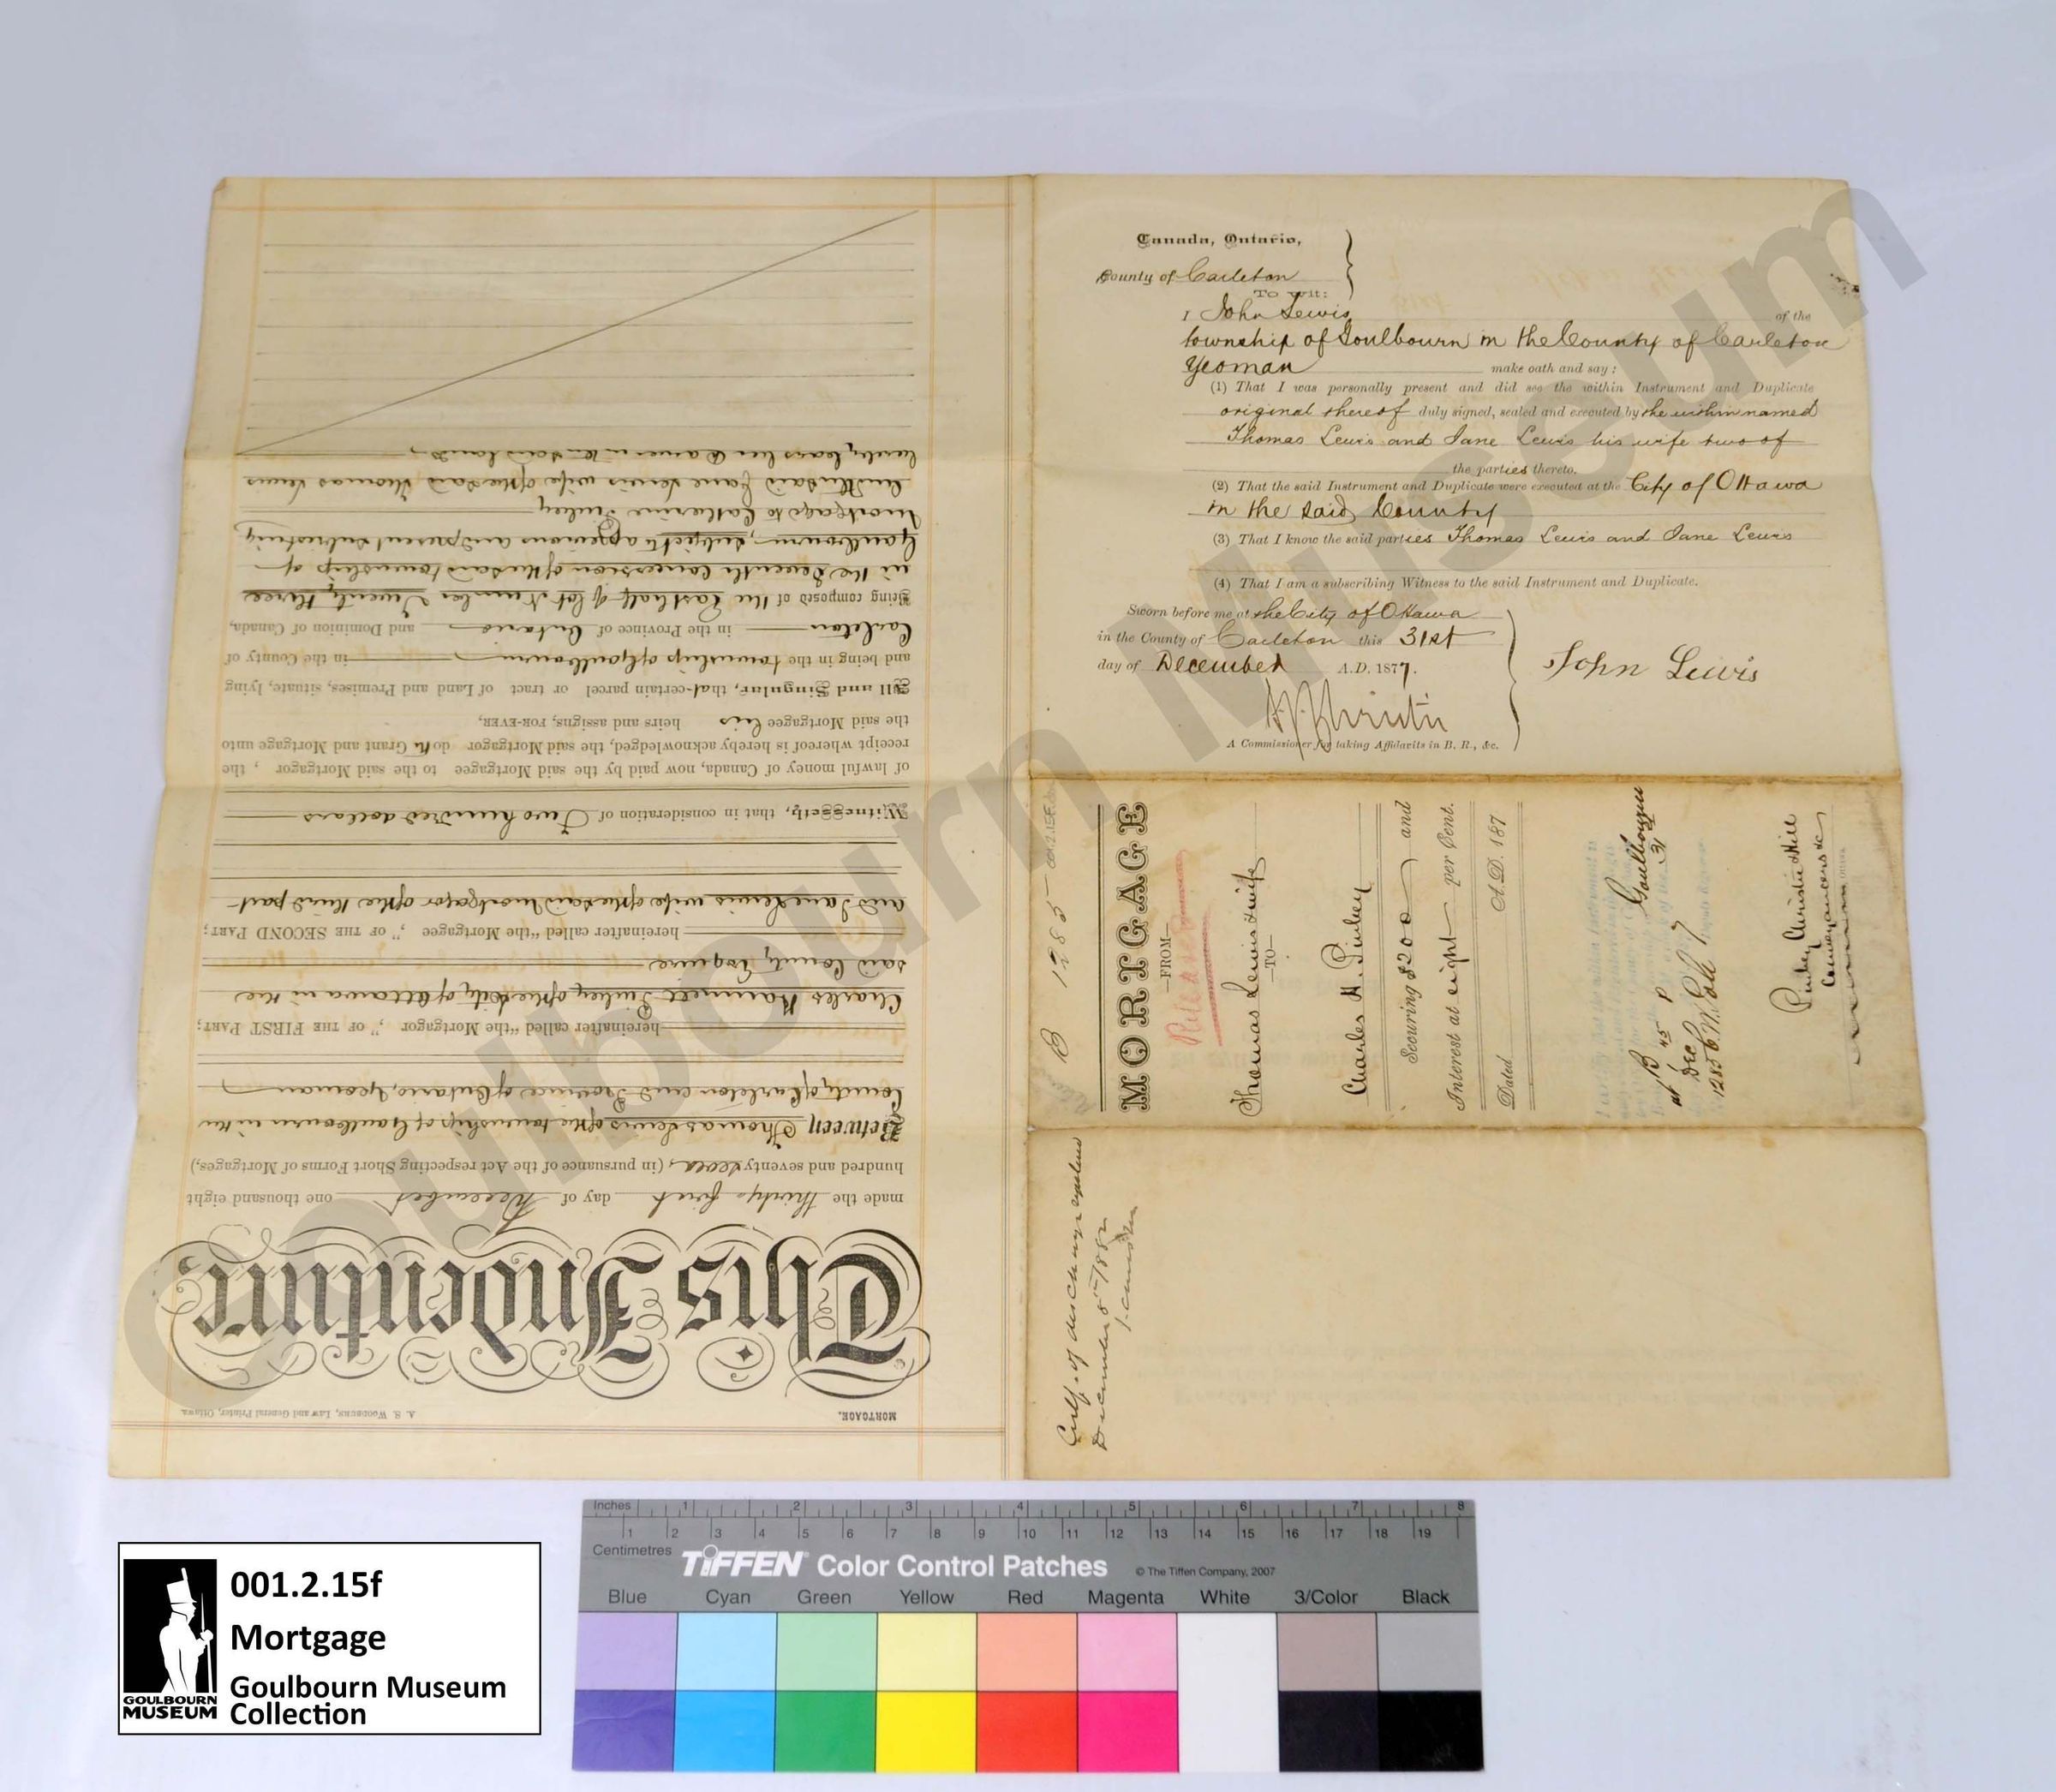 Canada, Ontario,
County of Carleton
To wit:
I John Lewis of the
township of Goulbourn in the County of Carleton
Yeoman make oath and say:
(1) That I was personally present and did see the within Instrument and Duplicate
original thereof duly signed, sealed and executed by the within named
Thomas Lewis and Jane Lewis his wife two of
the parties thereto.
(2) That the said Instrument and Duplicate were executed at the City of Ottawa
in the said County
(3) That I know the said parties Thomas Lewis and Jane Lewis
(4) That I am a subscribing Witness to the said Instrument and Duplicate.
Sworn before me at the City of Ottawa
in the County of Carleton this 31st
day of December A.D. 1877.
John Lewis
A Commissioner for taking Affidavits in B. R., &c.
B 1285
MORTGAGE
—FROM—
Released
Thomas Lewis & wife
—TO—
Charles H. Pinhey
Securing $200 and
Interest at eight per Cent.
Dated A.D. 187
Goulbourn
B
at 45 P 31st
Dec 7
1285
Pinhey Christie & Hill
Conveyancers &c
Certf. of discharge registered
December 8 1882
MORTGAGE.
A. S. Woodburn, Law and General Printer, Ottawa
This Indenture
made the thirty first day of December one thousand eight
hundred and seventy seven, (in pursuance of the Act respecting Short Forms of Mortgages,)
Between Thomas Lewis of the township of Goulbourn in the
County of Carleton and Province of Ontario, Yeoman
hereinafter called "the Mortgagor ," OF THE FIRST PART;
Charles Hamnett Pinhey of the City of Ottawa in the
said County Esquire
hereinafter called "the Mortgagee ," OF THE SECOND PART;
and Jane Lewis wife of the said mortgagor of the third part
Witnesseth, that in consideration of Two hundred dollars
of lawful money of Canada, now paid by the said Mortgagee to the said Mortgagor , the
receipt whereof is hereby acknowledged, the said Mortgagor doth Grant and Mortgage unto
the said Mortgagee his heirs and assigns, FOR-EVER,
All and Singular, that certain parcel or tract of Land and Premises, situate, lying
and being in the township of Goulbourn in the County of
Carleton in the Province of Ontario and Dominion of Canada,
Being composed of the East half of lot Number Twenty three
in the Seventh Concession of the said township of
Goulbourn, subject to a previous and present subsisting
Mortgage to Catherine Pinhey
And the said Jane Lewis wife of the said Thomas Lewis
hereby bars her Dower in the said lands
Goulbourn Museum
001.2.15f
Mortgage
Goulbourn Museum
Collection
GOULBOURN
MUSEUM
Inches 1 2 3 4 5 6 7 8
1 2 3 4 5 6 7 8 9 10 11 12 13 14 15 16 17 18 19
Centimetres
TIFFEN Color Control Patches © The Tiffen Company, 2007
Blue Cyan Green Yellow Red Magenta White 3/Color Black